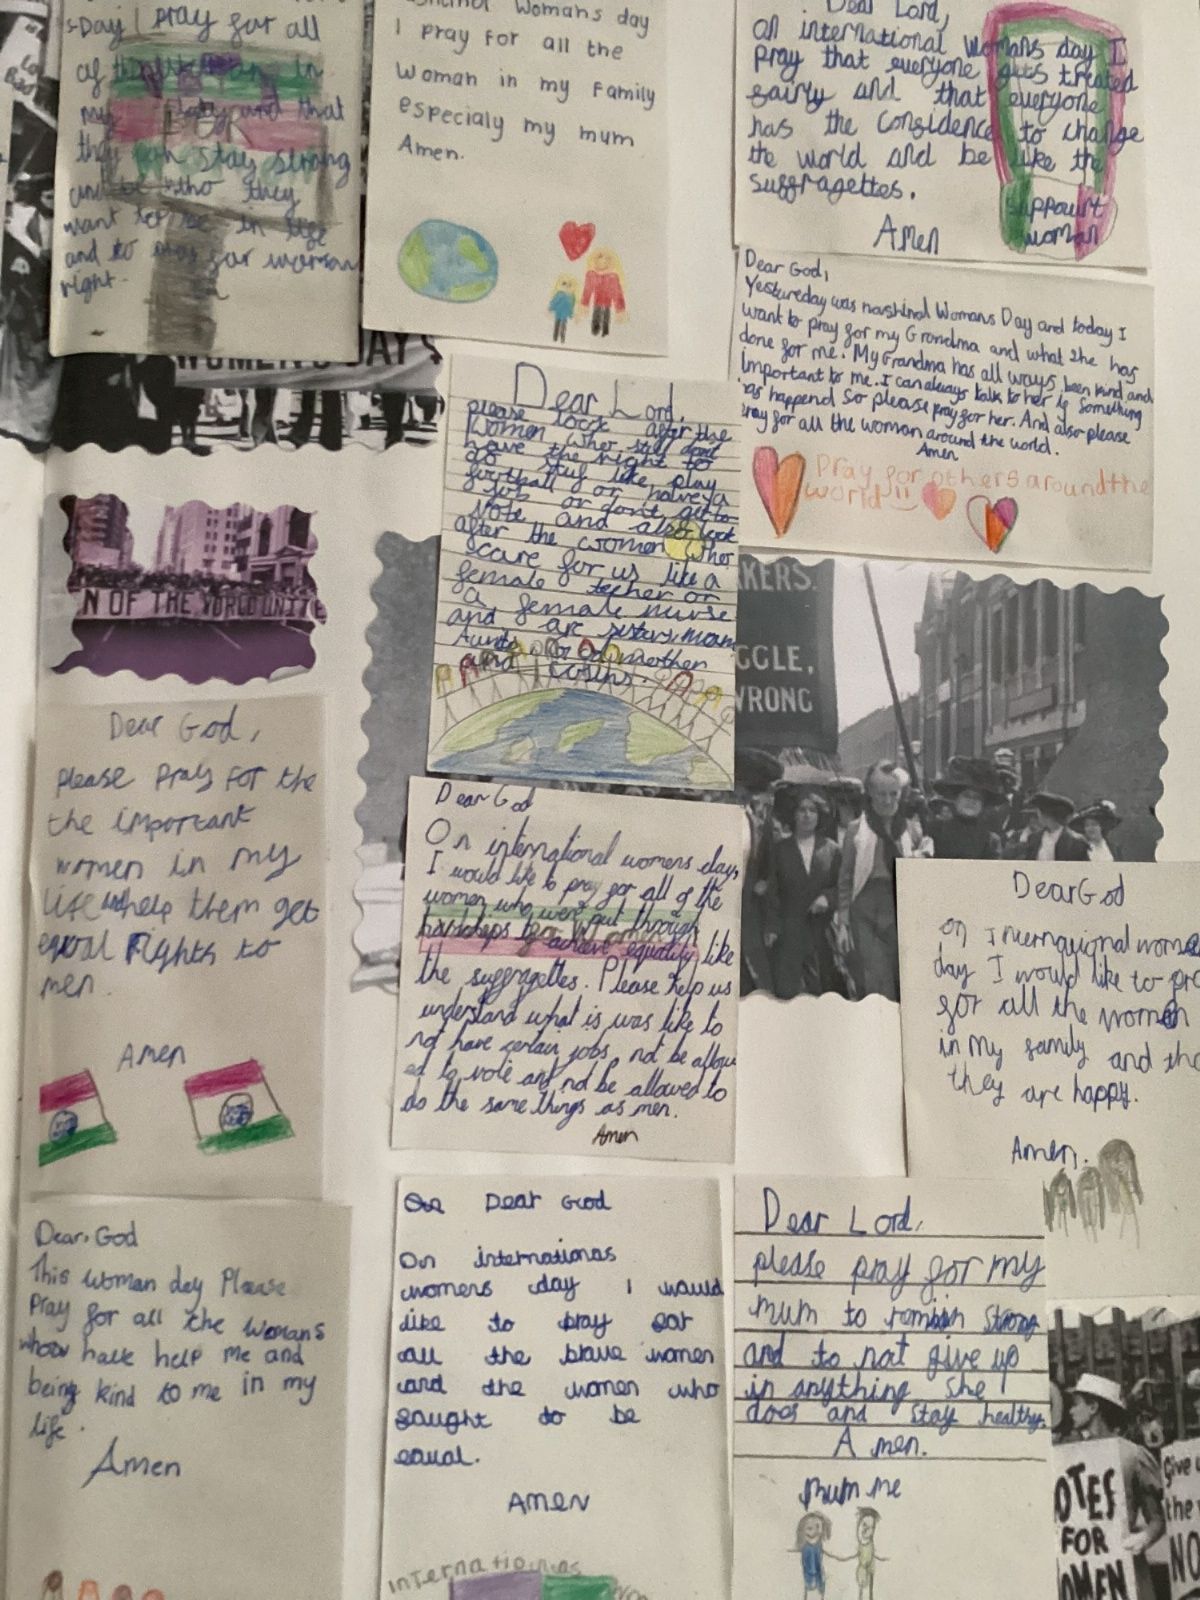 s-Day I pray for all
of
my and that
they can stay strong
and be who they
want to be in life
and to for woman
right.
Womans day
I pray for all the
Woman in my family
especialy my mum
Amen.
Dear Lord,
on international Womans day I
pray that everyone gets treated
fairly and that everyone
has the confidence to change
the world and be like the
suffragettes.
Amen
suppourt
woman
Dear God,
Yestureday was nashinal Womans Day and today I
want to pray for my Grondma and what she has
done for me. My Grandma has all ways been kind and
important to me. I can always talk to her if something
has happend so please pray for her. And also please
pray for all the woman around the world.
Amen
Pray for others around the
world!!
WOMEN'S DAY
Dear Lord,
please look after the
women wher still dont
have the right to
do stuf like play
football or halve a
job or dont get to
vote and also look
after the women wher
scare for us like a
female techer or
a female nurse
and are sisters, mom
Aunts, God mother
and cosins.
N OF THE WORLD UNITE
KERS.
GGLE,
WRONG
Dear God,
please pray for the
the important
women in my
life help them get
eqoal rights to
men.
Amen
Dear God
On international womens day,
I would like to pray for all of the
women who were put through
hardships to achieve equality like
the suffragettes. Please help us
understand what is was like to
not have certain jobs, not be allow
ed to vote and not be allowed to
do the same things as men.
Amen
Dear God
on International womens
day I would like to pra
for all the women
in my family and tha
they are happy.
Amen.
Dear God
This woman day Please
pray for all the womans
whow have help me and
being kind to me in my
life.
Amen
Dear God
On internationas
womens day I would
like to pray for
all the brave women
and the women who
fought to be
equal.
AMEN
internationas
Dear Lord,
please pray for my
mum to remain strong
and to not give up
in anything she
does and stay healthy.
Amen.
mum me
OTES
FOR
OMEN
Give
the
NO